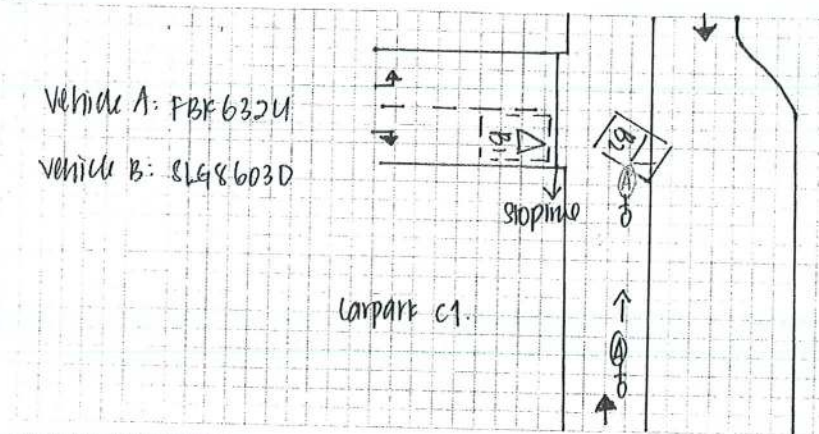 Vehicle A: FBK6324U
Vehicle B: SLG8603D
B1
B2
A
stopline
carpark C1.
A